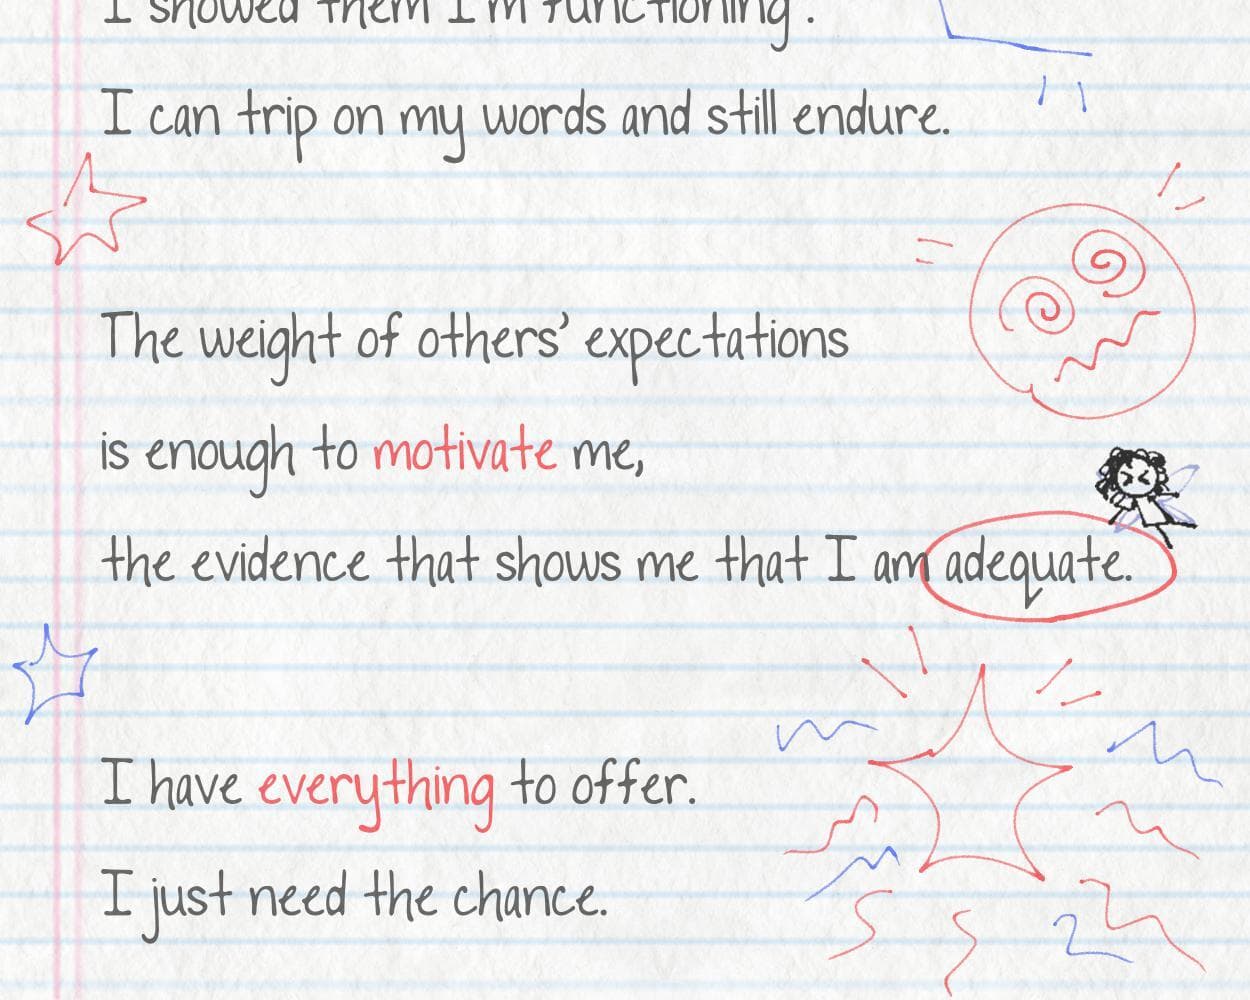 I showed them I'm functioning.
I can trip on my words and still endure.
The weight of others’ expectations
is enough to motivate me,
the evidence that shows me that I am adequate.
I have everything to offer.
I just need the chance.